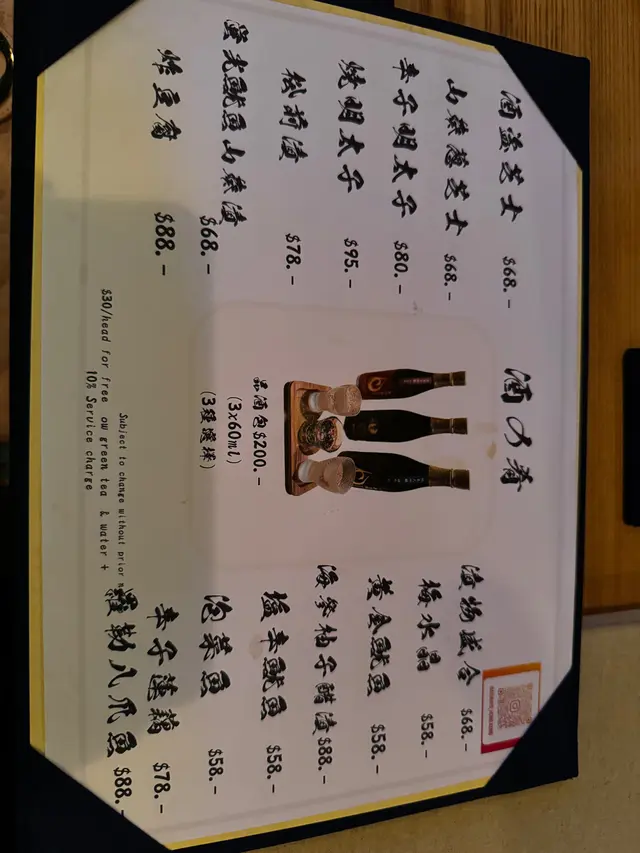 酒の肴
酒盗芝士 $68.-
山葵葱芝士 $68.-
辛子明太子 $80.-
燒明太子 $95.-
松前漬 $78.-
螢光魷魚山葵漬 $68.-
炸豆腐 $88.-
品酒包$200.-
(3x60ml)
(3種選擇)
漬物盛合 $68.-
梅水晶 $58.-
黃金魷魚 $58.-
海參柚子醋漬 $88.-
塩辛魷魚 $58.-
泡菜魚 $58.-
辛子蓮藕 $78.-
羅勒八爪魚 $88.-
Subject to change without prior
$30/head for free ow green tea & water +
10% Service charge